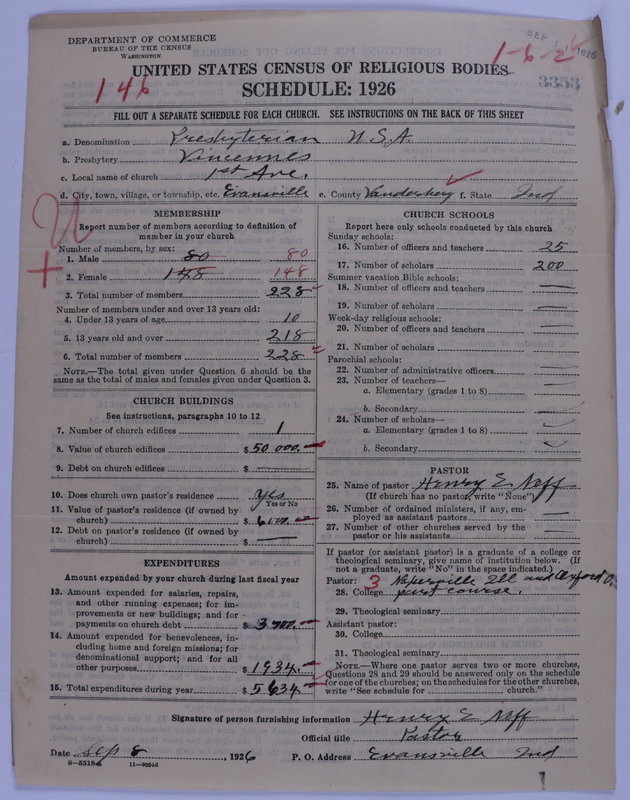 DEPARTMENT OF COMMERCE
BUREAU OF THE CENSUS
WASHINGTON
SEP 1926
1-6-2
3353
146
UNITED STATES CENSUS OF RELIGIOUS BODIES
SCHEDULE: 1926
FILL OUT A SEPARATE SCHEDULE FOR EACH CHURCH. SEE INSTRUCTIONS ON THE BACK OF THIS SHEET
a. Denomination Presbyterian U.S.A.
b. Presbytery Vincennes
c. Local name of church 1st Ave.
d. City, town, village, or township, etc. Evansville e. County Vanderberg f. State Ind
MEMBERSHIP
Report number of members according to definition of
member in your church
Number of members, by sex:
1. Male 80 80
2. Female 148 148
3. Total number of members 228
Number of members under and over 13 years old:
4. Under 13 years of age 10
5. 13 years old and over 218
6. Total number of members 228
NOTE.—The total given under Question 6 should be
same as the total of males and females given under Question 3.
CHURCH BUILDINGS
See instructions, paragraphs 10 to 12
7. Number of church edifices 1
8. Value of church edifices $ 50 000.
9. Debt on church edifices $
10. Does church own pastor's residence Yes
Yes or No
11. Value of pastor's residence (if owned by
church) $ 6000.
12. Debt on pastor's residence (if owned by
church) $
EXPENDITURES
Amount expended by your church during last fiscal year
13. Amount expended for salaries, repairs,
and other running expenses; for im-
provements or new buildings; and for
payments on church debt $ 3700.
14. Amount expended for benevolences, in-
cluding home and foreign missions; for
denominational support; and for all
other purposes $ 1934.
15. Total expenditures during year $ 5634
CHURCH SCHOOLS
Report here only schools conducted by this church
Sunday schools:
16. Number of officers and teachers 25
17. Number of scholars 200
Summer vacation Bible schools:
18. Number of officers and teachers
19. Number of scholars
Week-day religious schools:
20. Number of officers and teachers
21. Number of scholars
Parochial schools:
22. Number of administrative officers
23. Number of teachers—
a. Elementary (grades 1 to 8)
b. Secondary
24. Number of scholars—
a. Elementary (grades 1 to 8)
b. Secondary
PASTOR
25. Name of pastor Henry E. Neff
(If church has no pastor, write "None")
26. Number of ordained ministers, if any, em-
ployed as assistant pastors
27. Number of other churches served by the
pastor or his assistants
If pastor (or assistant pastor) is a graduate of a college or
theological seminary, give name of institution below. (If
not a graduate, write "No" in the space indicated.)
Pastor: 3 Naperville Ill and Oxford O.
28. College post course.
29. Theological seminary
Assistant pastor:
30. College
31. Theological seminary
NOTE.—Where one pastor serves two or more churches,
Questions 28 and 29 should be answered only on the schedule
for one of the churches; on the schedules for the other churches,
write "See schedule for church."
Signature of person furnishing information Henry E Neff
Official title Pastor
Date Sep 8, 1926 P. O. Address Evansville Ind
8-5518a 11-9054d